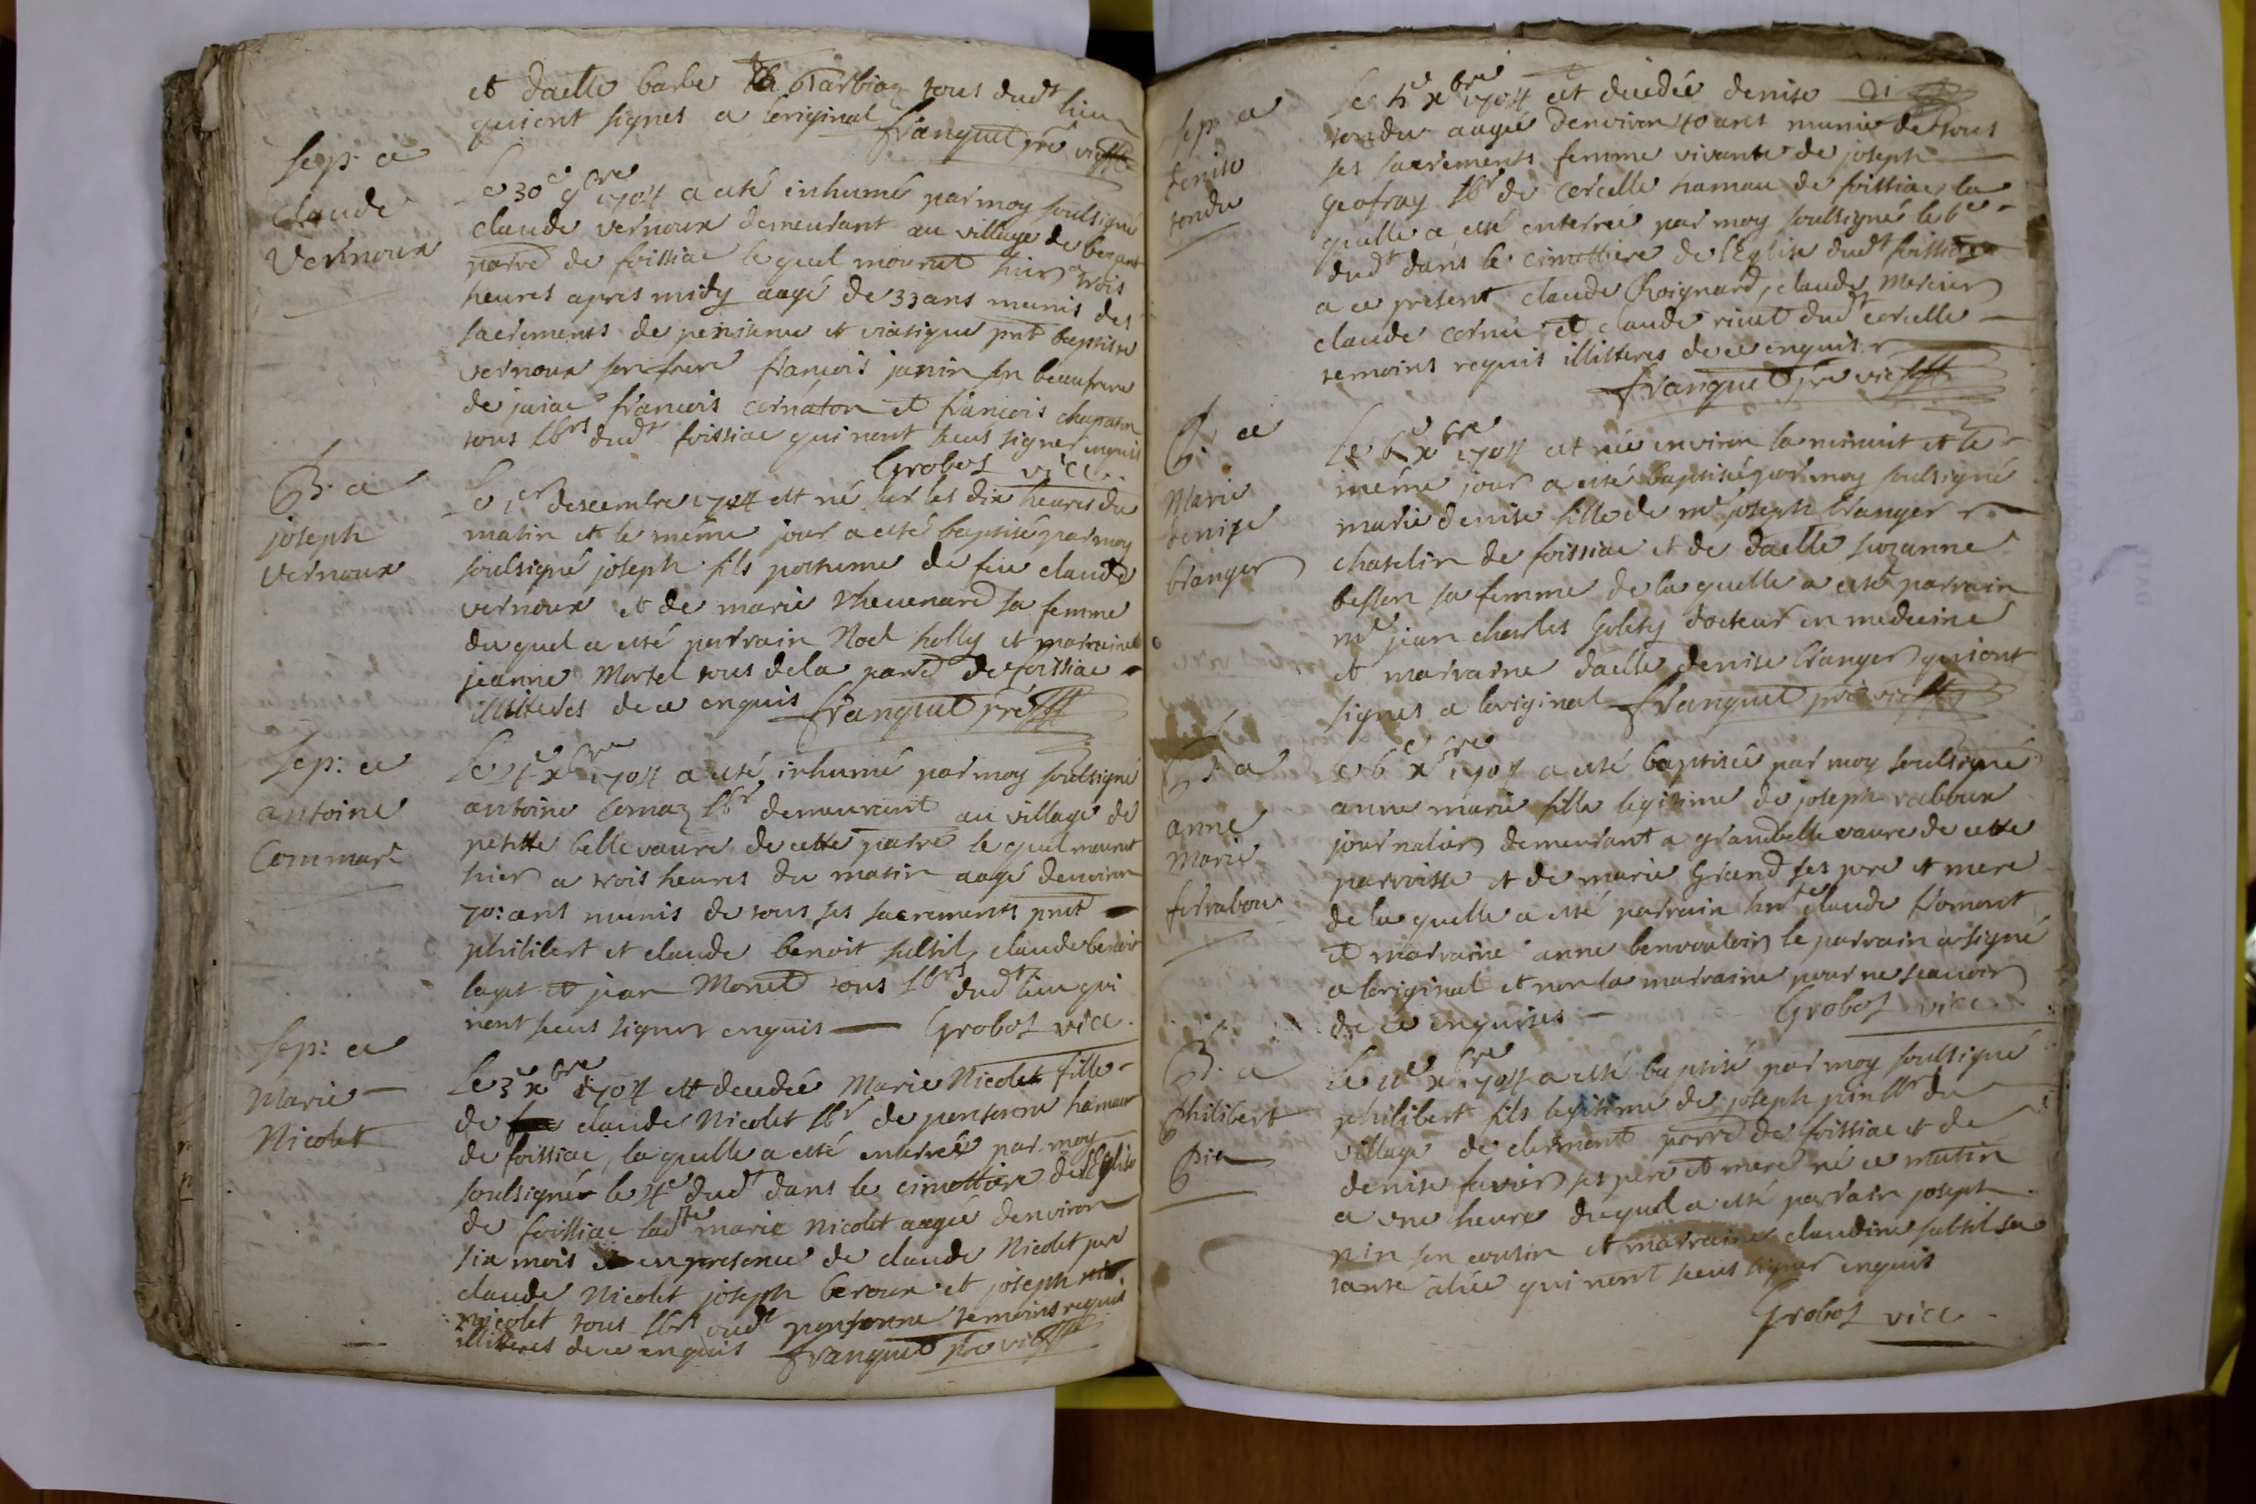 et daelle barbe Barbion tous dudt lieu
qui ont signes a loriginal franquet pre vic
Sep. a
claude
Vernoux
Le 30e 9bre 1704 a esté inhumé par moy soulsigné
claude vernoux demeurant au village de
parre de foissiac lequel mourut hier trois
heures apres midy aagé de 33 ans munis des
sacrements de penitence et viatique pnt baptiste
vernoux son frere françois janin son beaufrere
de jaiac françois cornaton et françois chaparon
tous lbrs dudt foissiac qui nont sceus signer enquis
Grobos vicc.
B. a
joseph
vernoux
Le 1er descembre 1704 est né sur les dix heures du
matin et le méme jour a esté baptisé par moy
soulsigné joseph fils postume de feu claude
vernoux et de marie thevenard sa femme
du quel a esté parrain Noel holly et marraine
jeanne Mortel tous de la parre de foissiac
illitteres de ce enquis franquet pre
Sep: a
antoine
Commar
Le xbre 1704 a esté inhumé par moy soulsigné
antoine Comaz lbr demeurant au village de
petitte bellevavre de cette parre le quel mourut
hier a trois heures du matin aagé denviron
70: ans munis de tous ses sacrements pnt
philibert et claude benoit subtil, claude benoit
layat et jean Monet tous lbrs dudt lieu qui
nont sceus signer enquis Grobos vicc.
Sep: a
Marie
Nicolet
Le 3e xbre 1704 est decedée Marie Nicolet fille
de claude Nicolet lbr de penssonne hameau
de foissiac, la quelle a esté enterrée par moy
soulsigné le 4e dudt dans le cimettiere de l'Eglise
de foissiac ladte marie nicolet aagée denviron
six mois en presence de claude Nicolet pere
claude Nicolet joseph beroux et joseph
nicolet tous lbrs dudt penssonne temoins requis
illitteres de ce enquis franquet pre vic
21
Sep: a
denise
tondu
Le xbre 1704 est decedée denise
tondu aagée denviron 70 ans munie de tous
ses sacrements femme vivante de joseph
geofray lbr de corcelle hamau de foissiac, la
quelle a esté enterrée par moy soulsigné le 6e
dudt dans le cimettiere de l'Eglise dudt foissiac
a ce present claude Roignard, claude Mercier
claude cornu et claude rivet dudt corcelle
temoins requis illitteres de ce enquis
franquet pre vic
B. a
Marie
denise
branger
Le 6e xbre 1704 est née environ la minuit et le
méme jour a esté baptisée par moy soulsigné
marie denise fille de mr joseph branger
chatelin de foissiac et de daelle suzanne
besson sa femme de la quelle a esté parrain
mr jean charles Goletty docteur en medecine
et marraine daelle denise branger qui ont
signes a loriginal franquet pre vic
B. a
anne
Marie
Le 6e xbre 1704 a esté baptisée par moy soulsigné
anne marie fille legitime de joseph
journalier demeurant a grandbellevavre de cette
parroisse et de marie Grand ses pere et mere
de la quelle a esté parrain hnt claude fromont
et marraine anne bonvouloir, le parrain a signé
a loriginal et non la marraine pour ne scauoir
de ce enquises Grobos vicc.
B. a
Philibert
Pin
Le 11e xbre 1704 a esté baptisé par moy soulsigné
philibert fils legitime de joseph pin lbr du
village de clermont parre de foissiac et de
denise favier ses pere et mere né ce matin
a une heure duquel a esté parrain joseph
pin son cousin et marraine claudine subtil sa
tante aliée qui nont sceus signer enquis
Grobos vicc.